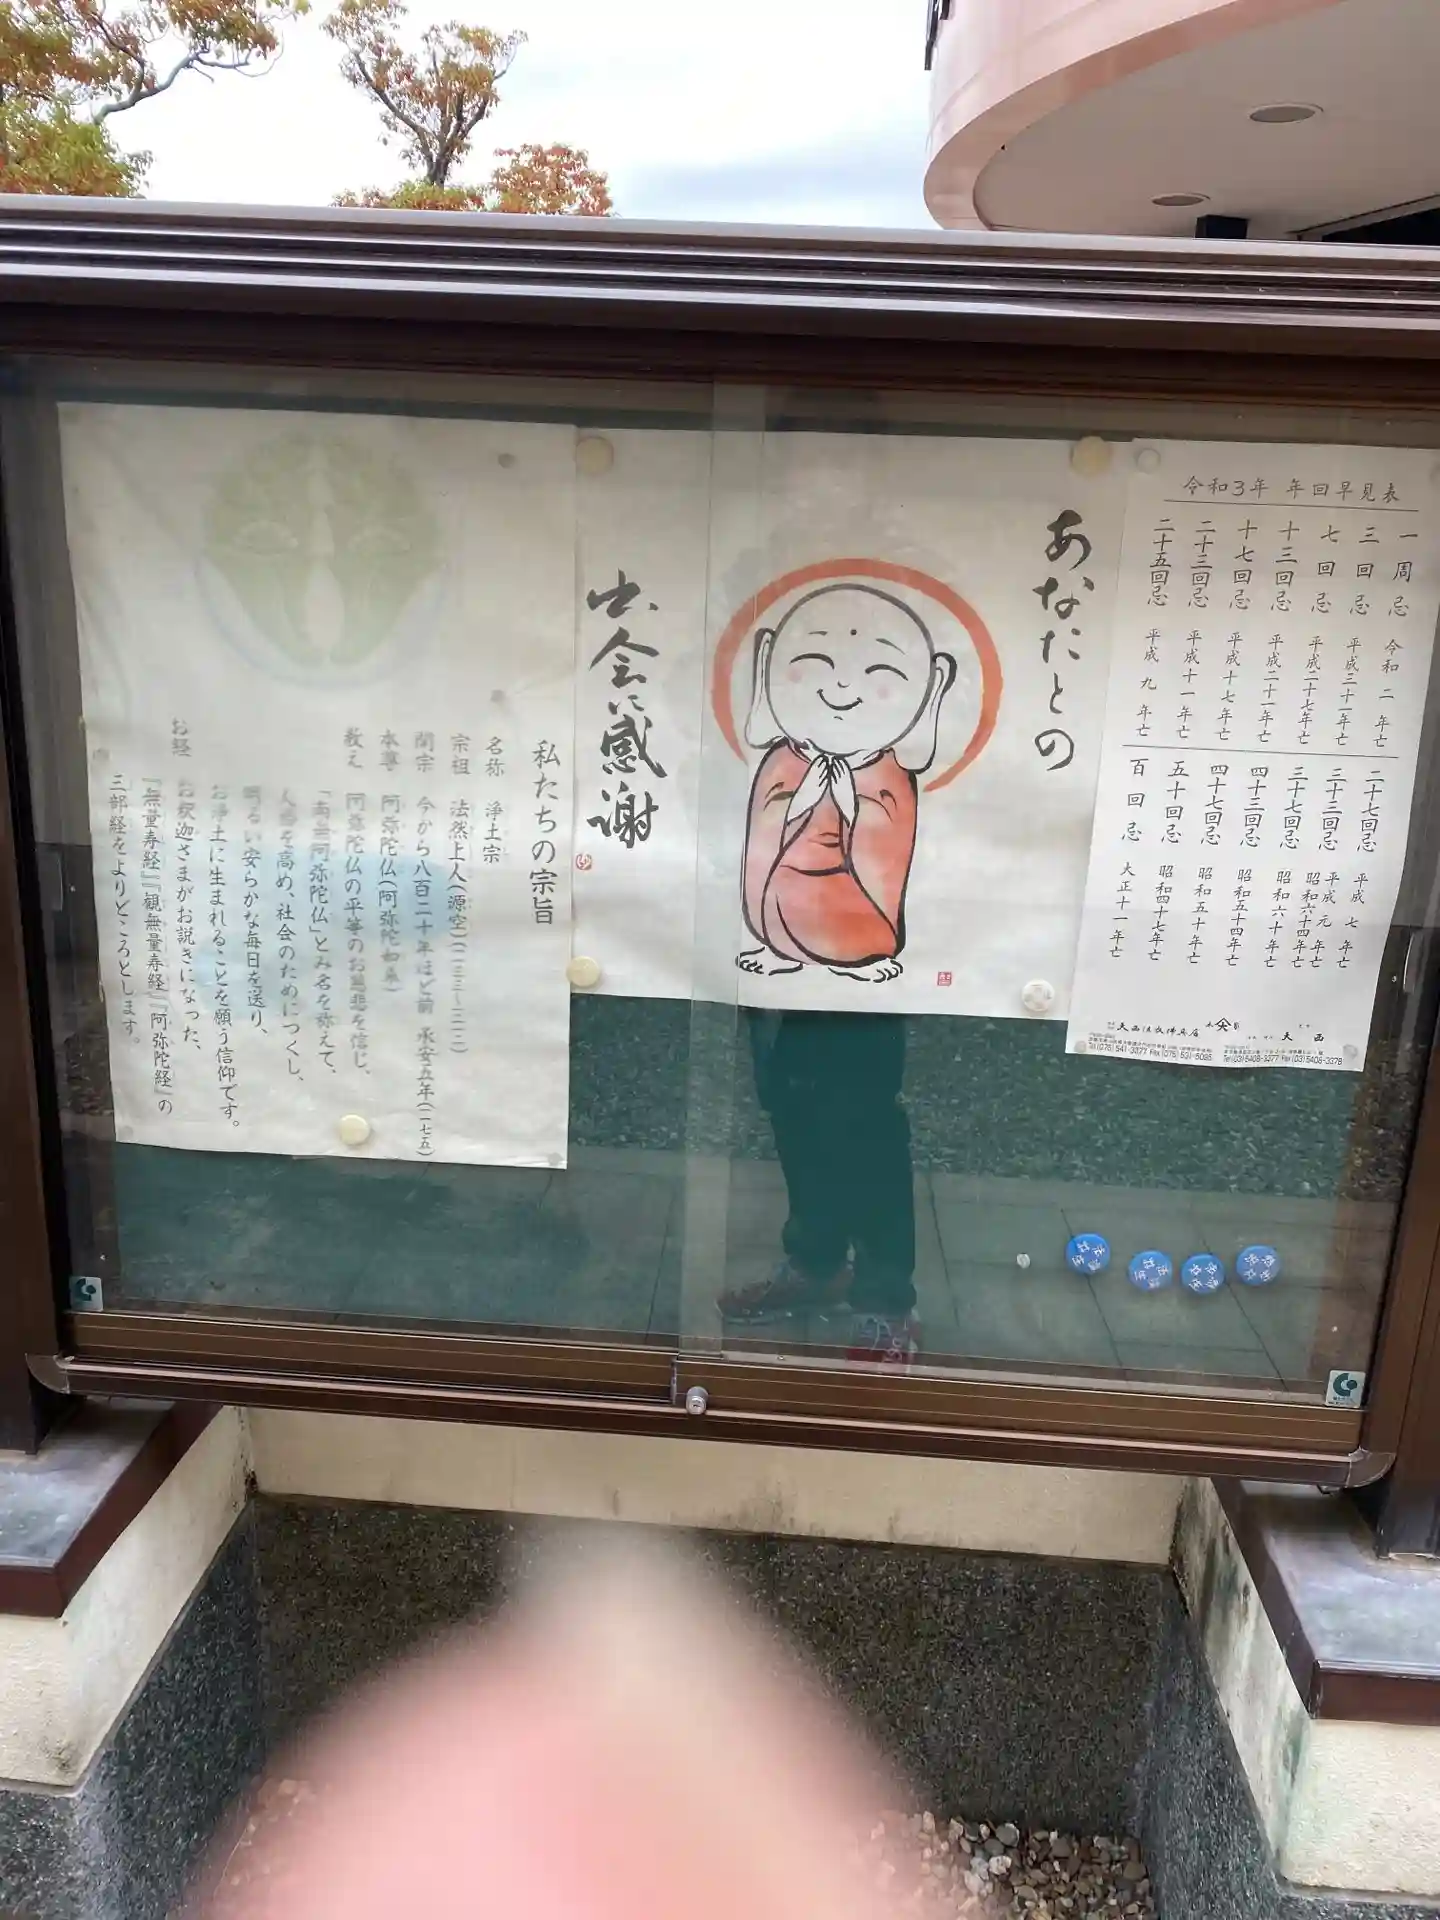 令和3年 年回早見表
一周忌 令和二年亡
三回忌 平成三十一年亡
七回忌 平成二十七年亡
十三回忌 平成二十一年亡
十七回忌 平成十七年亡
二十三回忌 平成十一年亡
二十五回忌 平成九年亡
二十七回忌 平成七年亡
三十三回忌 平成元年亡
昭和六十四年亡
三十七回忌 昭和六十年亡
四十三回忌 昭和五十四年亡
四十七回忌 昭和五十年亡
五十回忌 昭和四十七年亡
百回忌 大正十一年亡
天西法衣佛具店
Tel(075) 541-3377 Fax(075) 531-5095
天西
Tel(03)5408-3377 Fax(03)5408-3378
あなたとの
出会に感謝
私たちの宗旨
名称 浄土宗
宗祖 法然上人(源空)(一一三三~一二一二)
開宗 今から八百二十年ほど前 承安五年(一一七五)
本尊 阿弥陀仏(阿弥陀如来)
教え 阿弥陀仏の平等のお慈悲を信じ、
「南無阿弥陀仏」とみ名を称えて、
人格を高め、社会のためにつくし、
明るい安らかな毎日を送り、
お浄土に生まれることを願う信仰です。
お経 お釈迦さまがお説きになった、
『無量寿経』『観無量寿経』『阿弥陀経』の
三部経をよりどころとします。